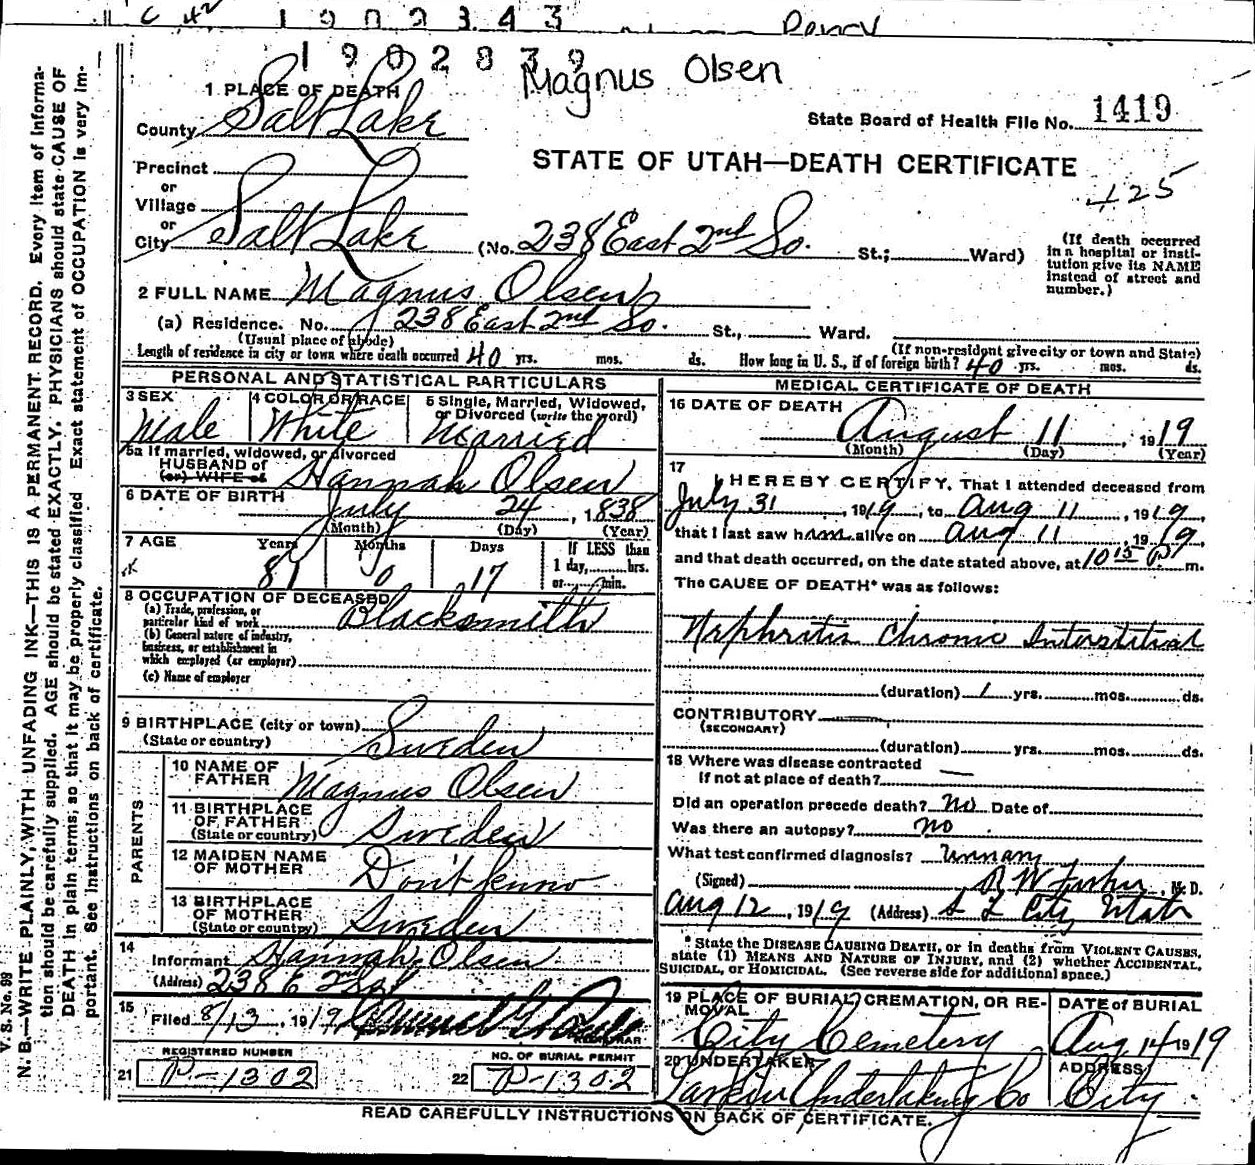 1902343
1902839
Magnus Olsen
1 PLACE OF DEATH
County Salt Lake
State Board of Health File No. 1419
STATE OF UTAH—DEATH CERTIFICATE
425
Precinct
or
Village
or
City Salt Lake (No. 238 East 2nd So. St.; Ward)
(If death occurred in a hospital or institution give its NAME instead of street and number.)
2 FULL NAME Magnus Olsen
(a) Residence. No. 238 East 2nd So. St., Ward.
(Usual place of abode) (If non-resident give city or town and State)
Length of residence in city or town where death occurred 40 yrs. mos. ds. How long in U. S., if of foreign birth? 40 yrs. mos. ds.
PERSONAL AND STATISTICAL PARTICULARS
3 SEX Male
4 COLOR OR RACE White
5 Single, Married, Widowed, or Divorced (write the word) Married
5a If married, widowed, or divorced
HUSBAND of
(or) WIFE of Hannah Olsen
6 DATE OF BIRTH July 24, 1838
(Month) (Day) (Year)
7 AGE Years 81 Months 0 Days 17 If LESS than 1 day, hrs. or min.
8 OCCUPATION OF DECEASED
(a) Trade, profession, or particular kind of work Blacksmith
(b) General nature of industry, business, or establishment in which employed (or employer)
(c) Name of employer
9 BIRTHPLACE (city or town)
(State or country) Sweden
PARENTS
10 NAME OF FATHER Magnus Olsen
11 BIRTHPLACE OF FATHER (State or country) Sweden
12 MAIDEN NAME OF MOTHER Don't kno
13 BIRTHPLACE OF MOTHER (State or country) Sweden
14
Informant Hannah Olsen
(Address) 238 E 2nd So
15 Filed 8/13, 1919
REGISTRAR
REGISTERED NUMBER
21 P-1302
NO. OF BURIAL PERMIT
22 P-1302
MEDICAL CERTIFICATE OF DEATH
16 DATE OF DEATH August 11, 1919
(Month) (Day) (Year)
17
I HEREBY CERTIFY, That I attended deceased from
July 31 1919, to Aug 11, 1919,
that I last saw him alive on Aug 11, 1919,
and that death occurred, on the date stated above, at 10 15 P. m.
The CAUSE OF DEATH* was as follows:
Nephritis Chronic Interstitial
(duration) 1 yrs. mos. ds.
CONTRIBUTORY
(SECONDARY)
(duration) yrs. mos. ds.
18 Where was disease contracted
if not at place of death? —
Did an operation precede death? No Date of
Was there an autopsy? no
What test confirmed diagnosis? Urinary
(Signed) M. D.
Aug 12, 1919 (Address) S L City Utah
* State the DISEASE CAUSING DEATH, or in deaths from VIOLENT CAUSES,
state (1) MEANS AND NATURE OF INJURY, and (2) whether ACCIDENTAL,
SUICIDAL, or HOMICIDAL. (See reverse side for additional space.)
19 PLACE OF BURIAL, CREMATION, OR REMOVAL City Cemetery
DATE of BURIAL Aug 14 1919
20 UNDERTAKER Larkin Undertaking Co
ADDRESS City
READ CAREFULLY INSTRUCTIONS ON BACK OF CERTIFICATE.
V. S. No. 99
N. B.—WRITE PLAINLY, WITH UNFADING INK—THIS IS A PERMANENT RECORD. Every item of informa-
tion should be carefully supplied. AGE should be stated EXACTLY. PHYSICIANS should state CAUSE OF
DEATH in plain terms, so that it may be properly classified. Exact statement of OCCUPATION is very im-
portant. See instructions on back of certificate.